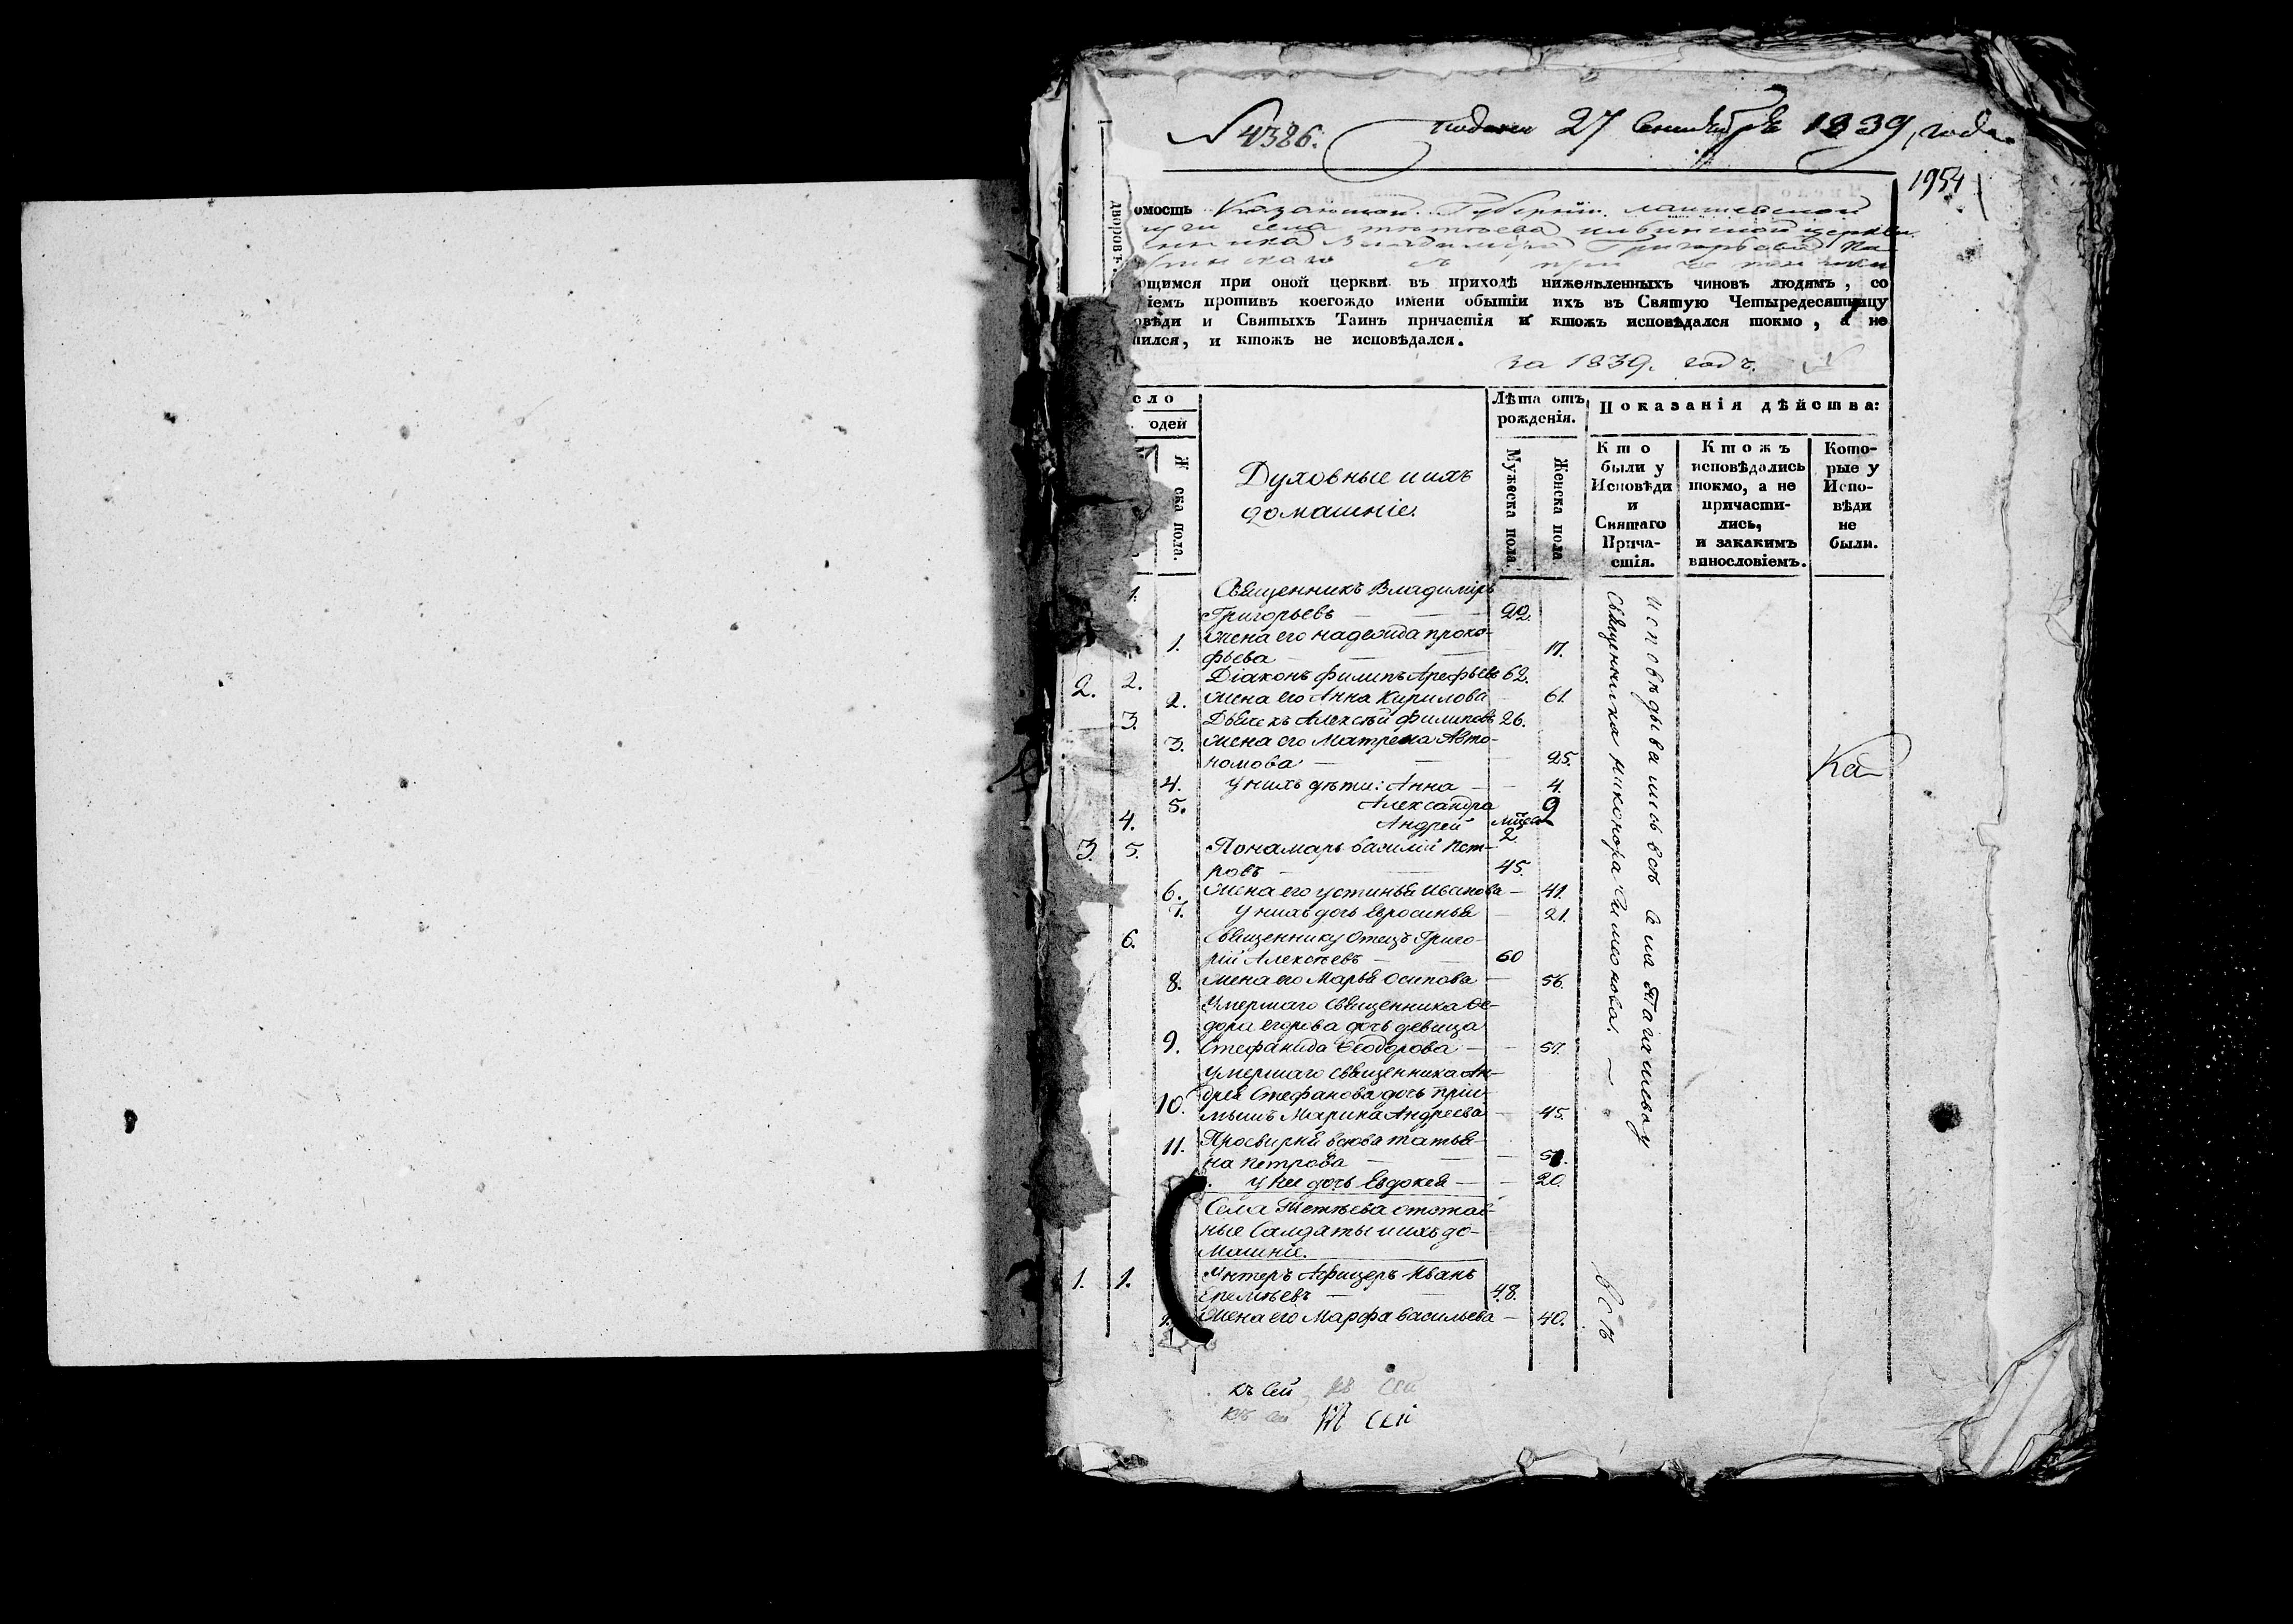 N 4386. подана 27 Сентября 1839, года.
1954
омость Казанской Губерніи Лаишевской
села Тетѣева ильинской церкви
Владиміра Григорьева
ющимся при оной церкви въ приходѣ нижеявленныхъ чиновъ людямъ, со
ніемъ противъ коегождо имени обытіи ихъ въ Святую Четыредесятницу
овѣди и Святыхъ Таинъ причастія и ктожъ исповѣдался токмо, а не
тился, и ктожъ не исповѣдался.
за 1839. годъ.
дворовъ.
сло
одей
Ж ска пола.
Духовные и ихъ
домашніе.
Лѣта отъ
рожденія.
Мужеска пола.
Женска пола
Показанія дѣйства:
Кто
были у
Исповѣди
и
Святаго
Прича-
стія.
Ктожъ
исповѣдались
токмо, а не
причасти-
лись,
и закакимъ
винословіемъ.
Кото-
рые у
Испо-
вѣди
не
были.
1. Священникъ Владиміръ
Григорьевъ — 22.
1. Жена его надежда проко-
фьева — 17.
2. 2. Діаконъ Филипъ Арефьевъ 62.
2. Жена его Анна Кирилова — 61.
3. Дьячекъ Алексѣй Филиповъ 26.
3. Жена его Матрена Авто-
номова — 25.
4. У нихъ дѣти: Анна — 4.
5. Александра 2
4. Андрей мѣся 2
3. 5. Пономарь Василій Пет-
ровъ — 45.
6. Жена его устинья Иванова — 41.
7. У нихъ дочь Евросинья — 21.
6. Священнику Отецъ Григо-
рій Алексѣевъ — 60
8. Жена его Марья Осипова — 56.
Умершаго священника Ѳе-
дора егорова дочь девица
9. Стефанида Ѳеодорова — 57.
Умершаго священника Ан-
дрея Стефанова дочь прій
10. мышъ Марина Андреева — 45.
11. Просвирня вдова татья-
на петрова — 51.
У нее дочь Евдокея — 20.
Села Тетѣева отстав-
ные Салдаты и ихъ до-
машніе.
1. 1. Унтеръ Афицеръ Иванъ
48.
1. Жена его Марфа Васильева — 40.
Исповѣдывались всѣ Села
Священника никонора
всѣ
къ сей къ сей
къ сей къ сей